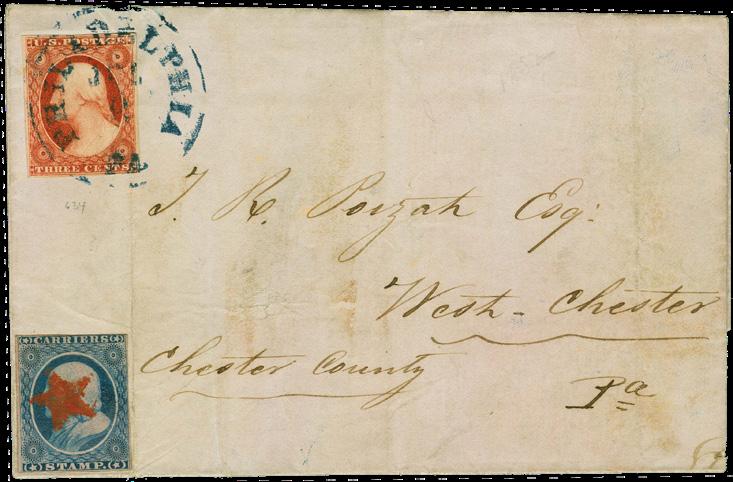 U.S. POSTAGE
THREE CENTS
PHILADELPHIA
PA
634
J. R.
Esq:
West-Chester
Chester County
Pa
CARRIERS
STAMP.